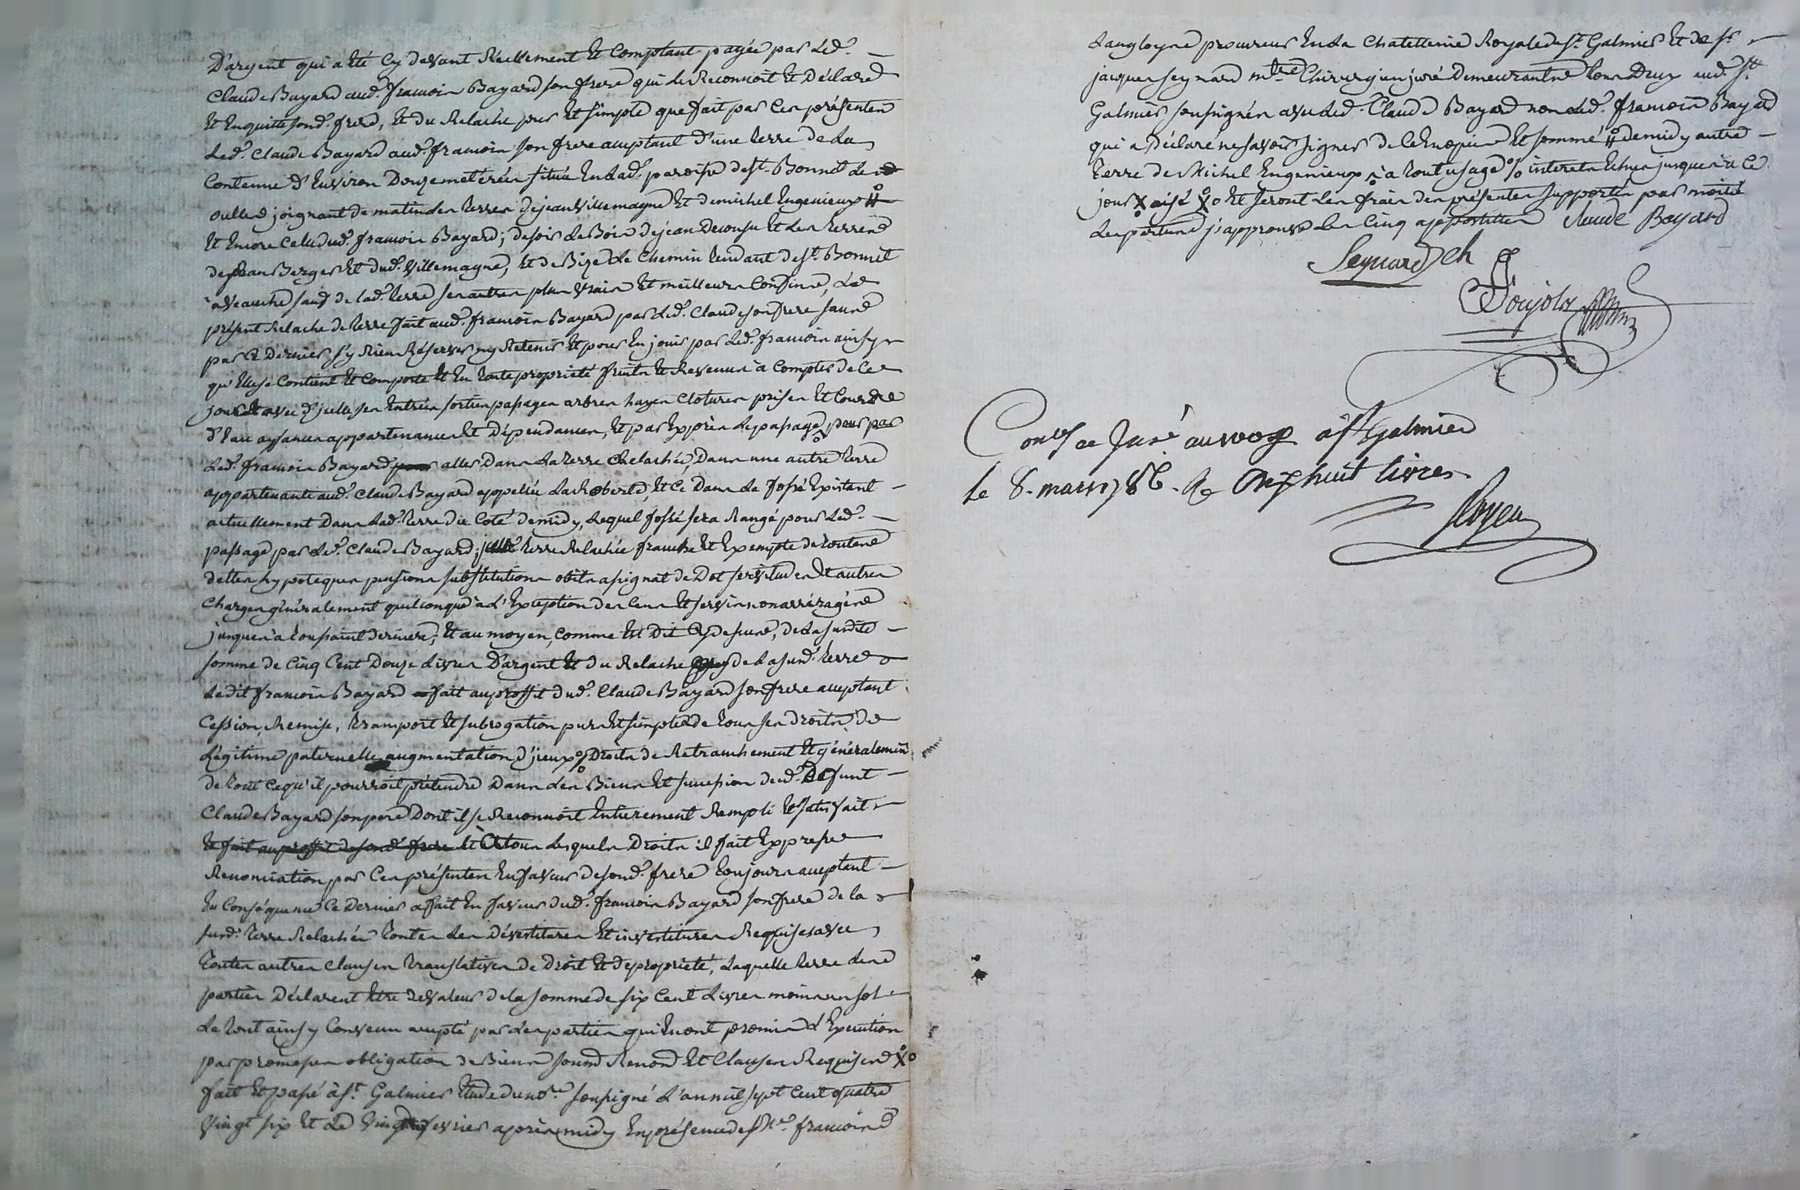 D'argent qui a été cy devant Réellement Et Comptant payée par Led.
Claude Bayard aud. francois Bayard son frere qui le Reconnoit Et Déclare
Et En quitte sond. frere, Et du Relache pur Et simple que fait par Ces présentes
Led. Claude Bayard aud. francois son frere acceptant D'une terre de la
Contenue D'Environ Douze meterées située En lad. paroisse de St. Bonnet Les
oulles joignant de matin les terres de jean Villemagne Et de michel Engenieux
Et Encore Celle dud. francois Bayard; de soir le Bois de jean Decousu Et les terres
de jean Berger Et dud. Villemagne, Et de Bize le Chemin tendant de St. Bonnet
à Veauche sauf de lad. terre ses autres plus Vrais Et meilleurs Confins, Le
présent Relache de terre fait aud. francois Bayard par Led. Claude son frere sans
par Ce Dernier s'y Rien Réserver ny Retenir Et pour En jouir par Led. francois ainsy
qu'Elle se Contient Et Comporte Et En toute propriété fruits Et Revenus à Compter de Ce
jour avec D'jcelle ses Entrées sorties passages arbres hayes Clotures prises Et Cours
D'Eau aysances appartenances Et Dépendances, Et par Exprès le passage pour par
Led. francois Bayard aller Dans La terre Relachée, Dans une autre terre
appartenante aud. Claude Bayard appellée La Roberte, Et Ce Dans le fossé Existant
actuellement Dans Led. terre du Coté de midy, Lequel fossé sera Rangé pour Led.
passage par Led. Claude Bayard; terre Relachée franche Et Exempte de toutes
dettes hypoteques pensions substitutions obits assignat de Dot servitudes Et autres
Charges généralement quelconque à L'Exception des Cens Et servis non arréragés
jusques à toussaint derniere, Et au moyen, Comme Est Dit Cy dessus, de la susdite
somme de Cinq Cent Douze Livres D'argent Et du Relache de la susd. terre
Ledit francois Bayard fait au proffit dud. Claude Bayard son frere acceptant
Cession, Remise, transport Et subrogation pure Et simple de tous ses droits de
Légitime paternelle augmentation D'jceux Droits de Retranchement Et généralement
de tout Ce qu'il pourroit prétendre Dans les Biens Et succession dud. Defunt
Claude Bayard son pere Dont il se Reconnoit Entierement Rempli Et satisfait
Et fait au proffit de sond. frere Et à tous Lesquels Droits il fait Expresse
Renonciation par Ces présentes En faveur de sond. frere toujours acceptant
En Conséquence Ce Dernier a fait En faveur dud. francois Bayard son frere de la
susd. terre Relachée toutes Les Dévestitures Et investitures Requises avec
toutes autres Clauses translatives de Droit Et de propriété, Laquelle terre les
parties Déclarent Etre de valeur de la somme de six Cent Livres moins un sol
Le tout ainsy Convenu accepté par Les parties qui En ont promis L'Execution
par promesses obligation de Biens soumd. Renond. Et Clauses Requises
fait Et passé à St. Galmier Etude du nore. soussigné L'an mil sept Cent quatre
Vingt six Et Le Vingt fevrier après midy En présence de Me. francois
Langloyne procureur En la Chatellenie Royale de St. Galmier Et de sr.
jacques seynard mtre Chirurgien juré Demeurants tous Deux aud. St.
Galmier soussignés avec Led. Claude Bayard non Led. francois Bayard
qui a déclaré ne savoir signer de le Enquis Et sommé # de midy autre
terre de Michel Engenieux à tout usage % interets Echus jusques à Ce
jour X aisé X Et seront les frais des présentes supportés par moitié
Les parties j'approuve les Cinq apostilles Claude Bayard
Seynard Ch
Poujols
Conlé ce Jnsé au reog à St Galmier
le 8. mars 1786. Re Dix huit livres